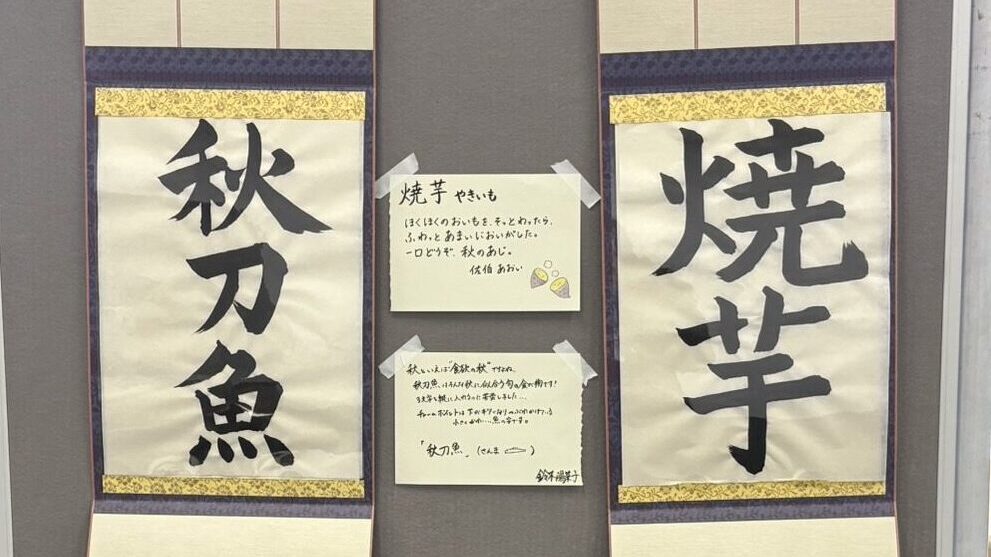 焼芋
焼芋 やきいも
ほくほくのおいもを、そっとわったら、
ふわっとあまいにおいがした。
一口どうぞ、秋のあじ。
佐伯 あおい
秋刀魚
秋といえば"食欲の秋"ですよね。
秋刀魚、はそんな秋に似合う旬の食べ物です!
3文字を縦に入れるのに苦労しました...
チャームポイントは
小さく
魚の字です。
「秋刀魚」(さんま)